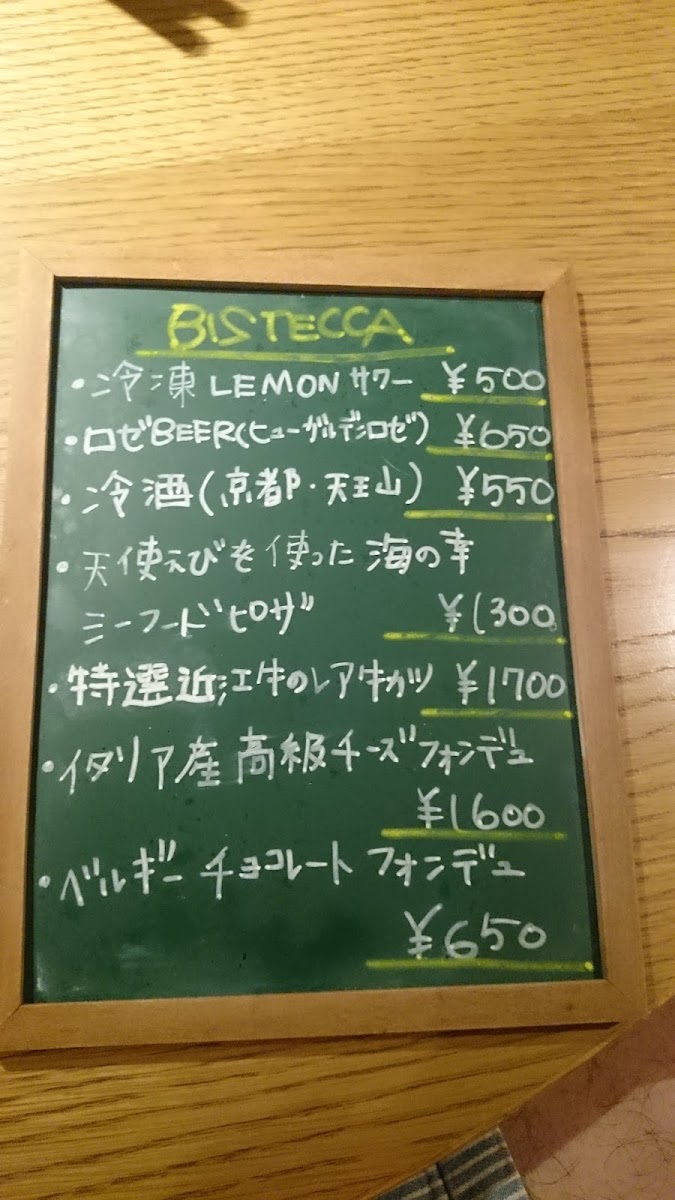 BISTECCA
・冷凍 LEMON サワー ¥500
・ロゼBEER(ヒューガルデンロゼ) ¥650
・冷酒(京都・天王山) ¥550
・天使えびを使った海の幸
シーフードピザ ¥1300
・特選近江牛のレア牛カツ ¥1700
・イタリア産高級チーズフォンデュ
¥1600
・ベルギーチョコレートフォンデュ
¥650